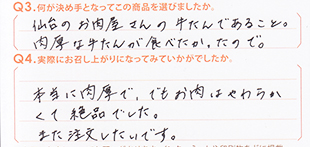 Q3.何が決め手となってこの商品を選びましたか。
仙台のお肉屋さんの牛たんであること。
肉厚な牛たんが食べたかったので。
Q4.実際にお召し上がりになってみていかがでしたか。
本当に肉厚で、でもお肉はやわらか
くて絶品でした。
また注文したいです。